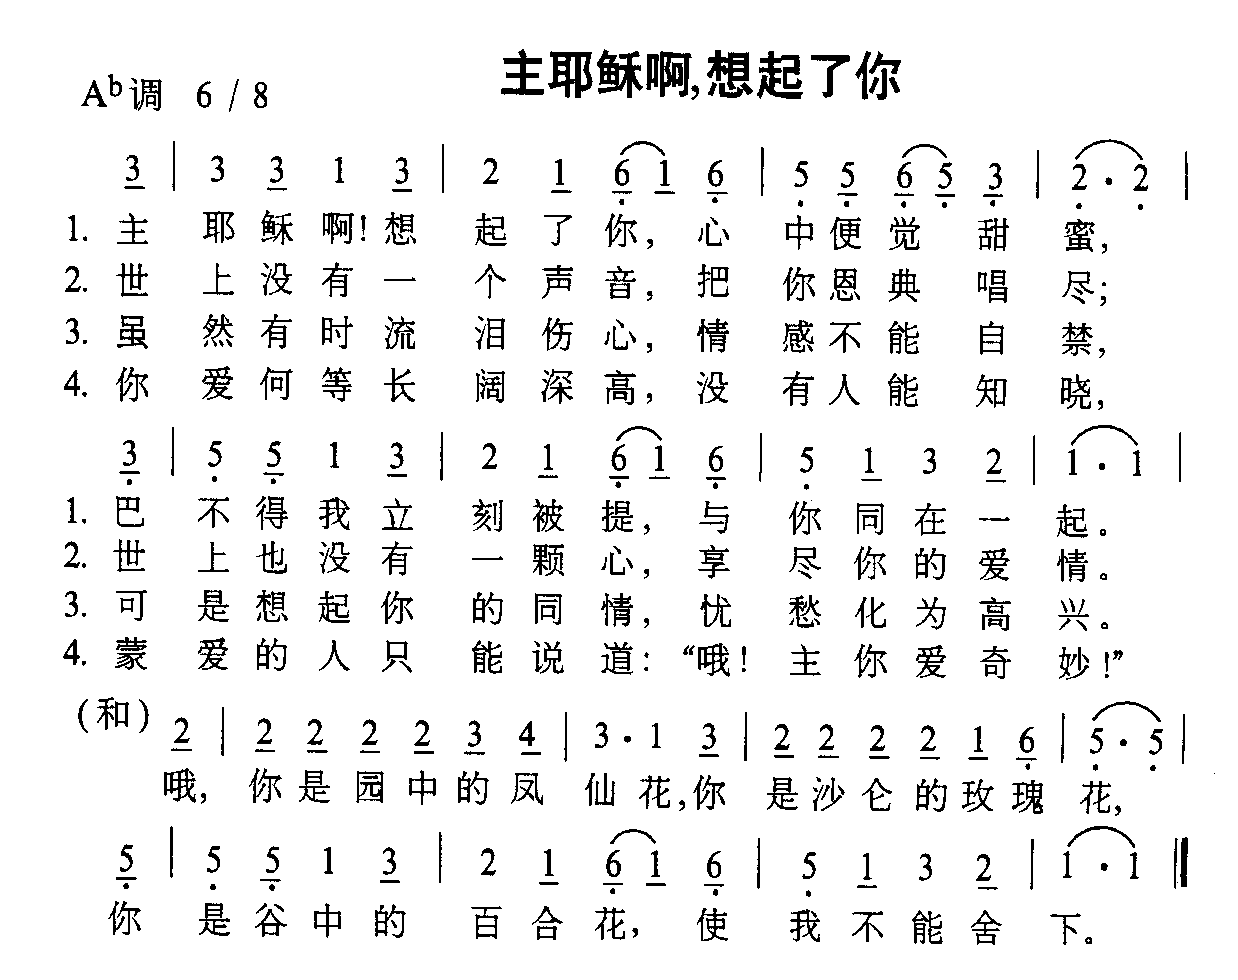 主耶稣啊,想起了你
A♭调 6 / 8
3 | 3 3 1 3 | 2 1 6 1 6 | 5 5 6 5 3 | 2 · 2 |
1. 主耶稣啊!想起了你,心中便觉甜蜜,
2. 世上没有一个声音,把你恩典唱尽;
3. 虽然有时流泪伤心,情感不能自禁,
4. 你爱何等长阔深高,没有人能知晓,
3 | 5 5 1 3 | 2 1 6 1 6 | 5 1 3 2 | 1 · 1 |
1. 巴不得我立刻被提,与你同在一起。
2. 世上也没有一颗心,享尽你的爱情。
3. 可是想起你的同情,忧愁化为高兴。
4. 蒙爱的人只能说道:“哦!主你爱奇妙!”
(和) 2 | 2 2 2 2 3 4 | 3 · 1 3 | 2 2 2 2 1 6 | 5 · 5 |
哦,你是园中的凤仙花,你是沙仑的玫瑰花,
5 | 5 5 1 3 | 2 1 6 1 6 | 5 1 3 2 | 1 · 1 ‖
你是谷中的百合花,使我不能舍下。